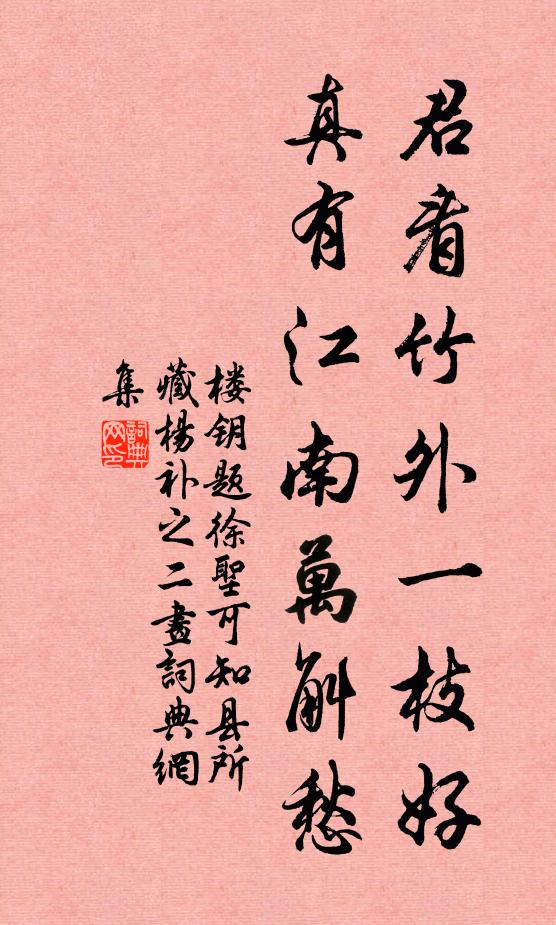 君看竹外一枝好
真有江南萬斛愁
楼钥题徐聖可知县所
藏楊补之二畫詞典網
集
詞典网印